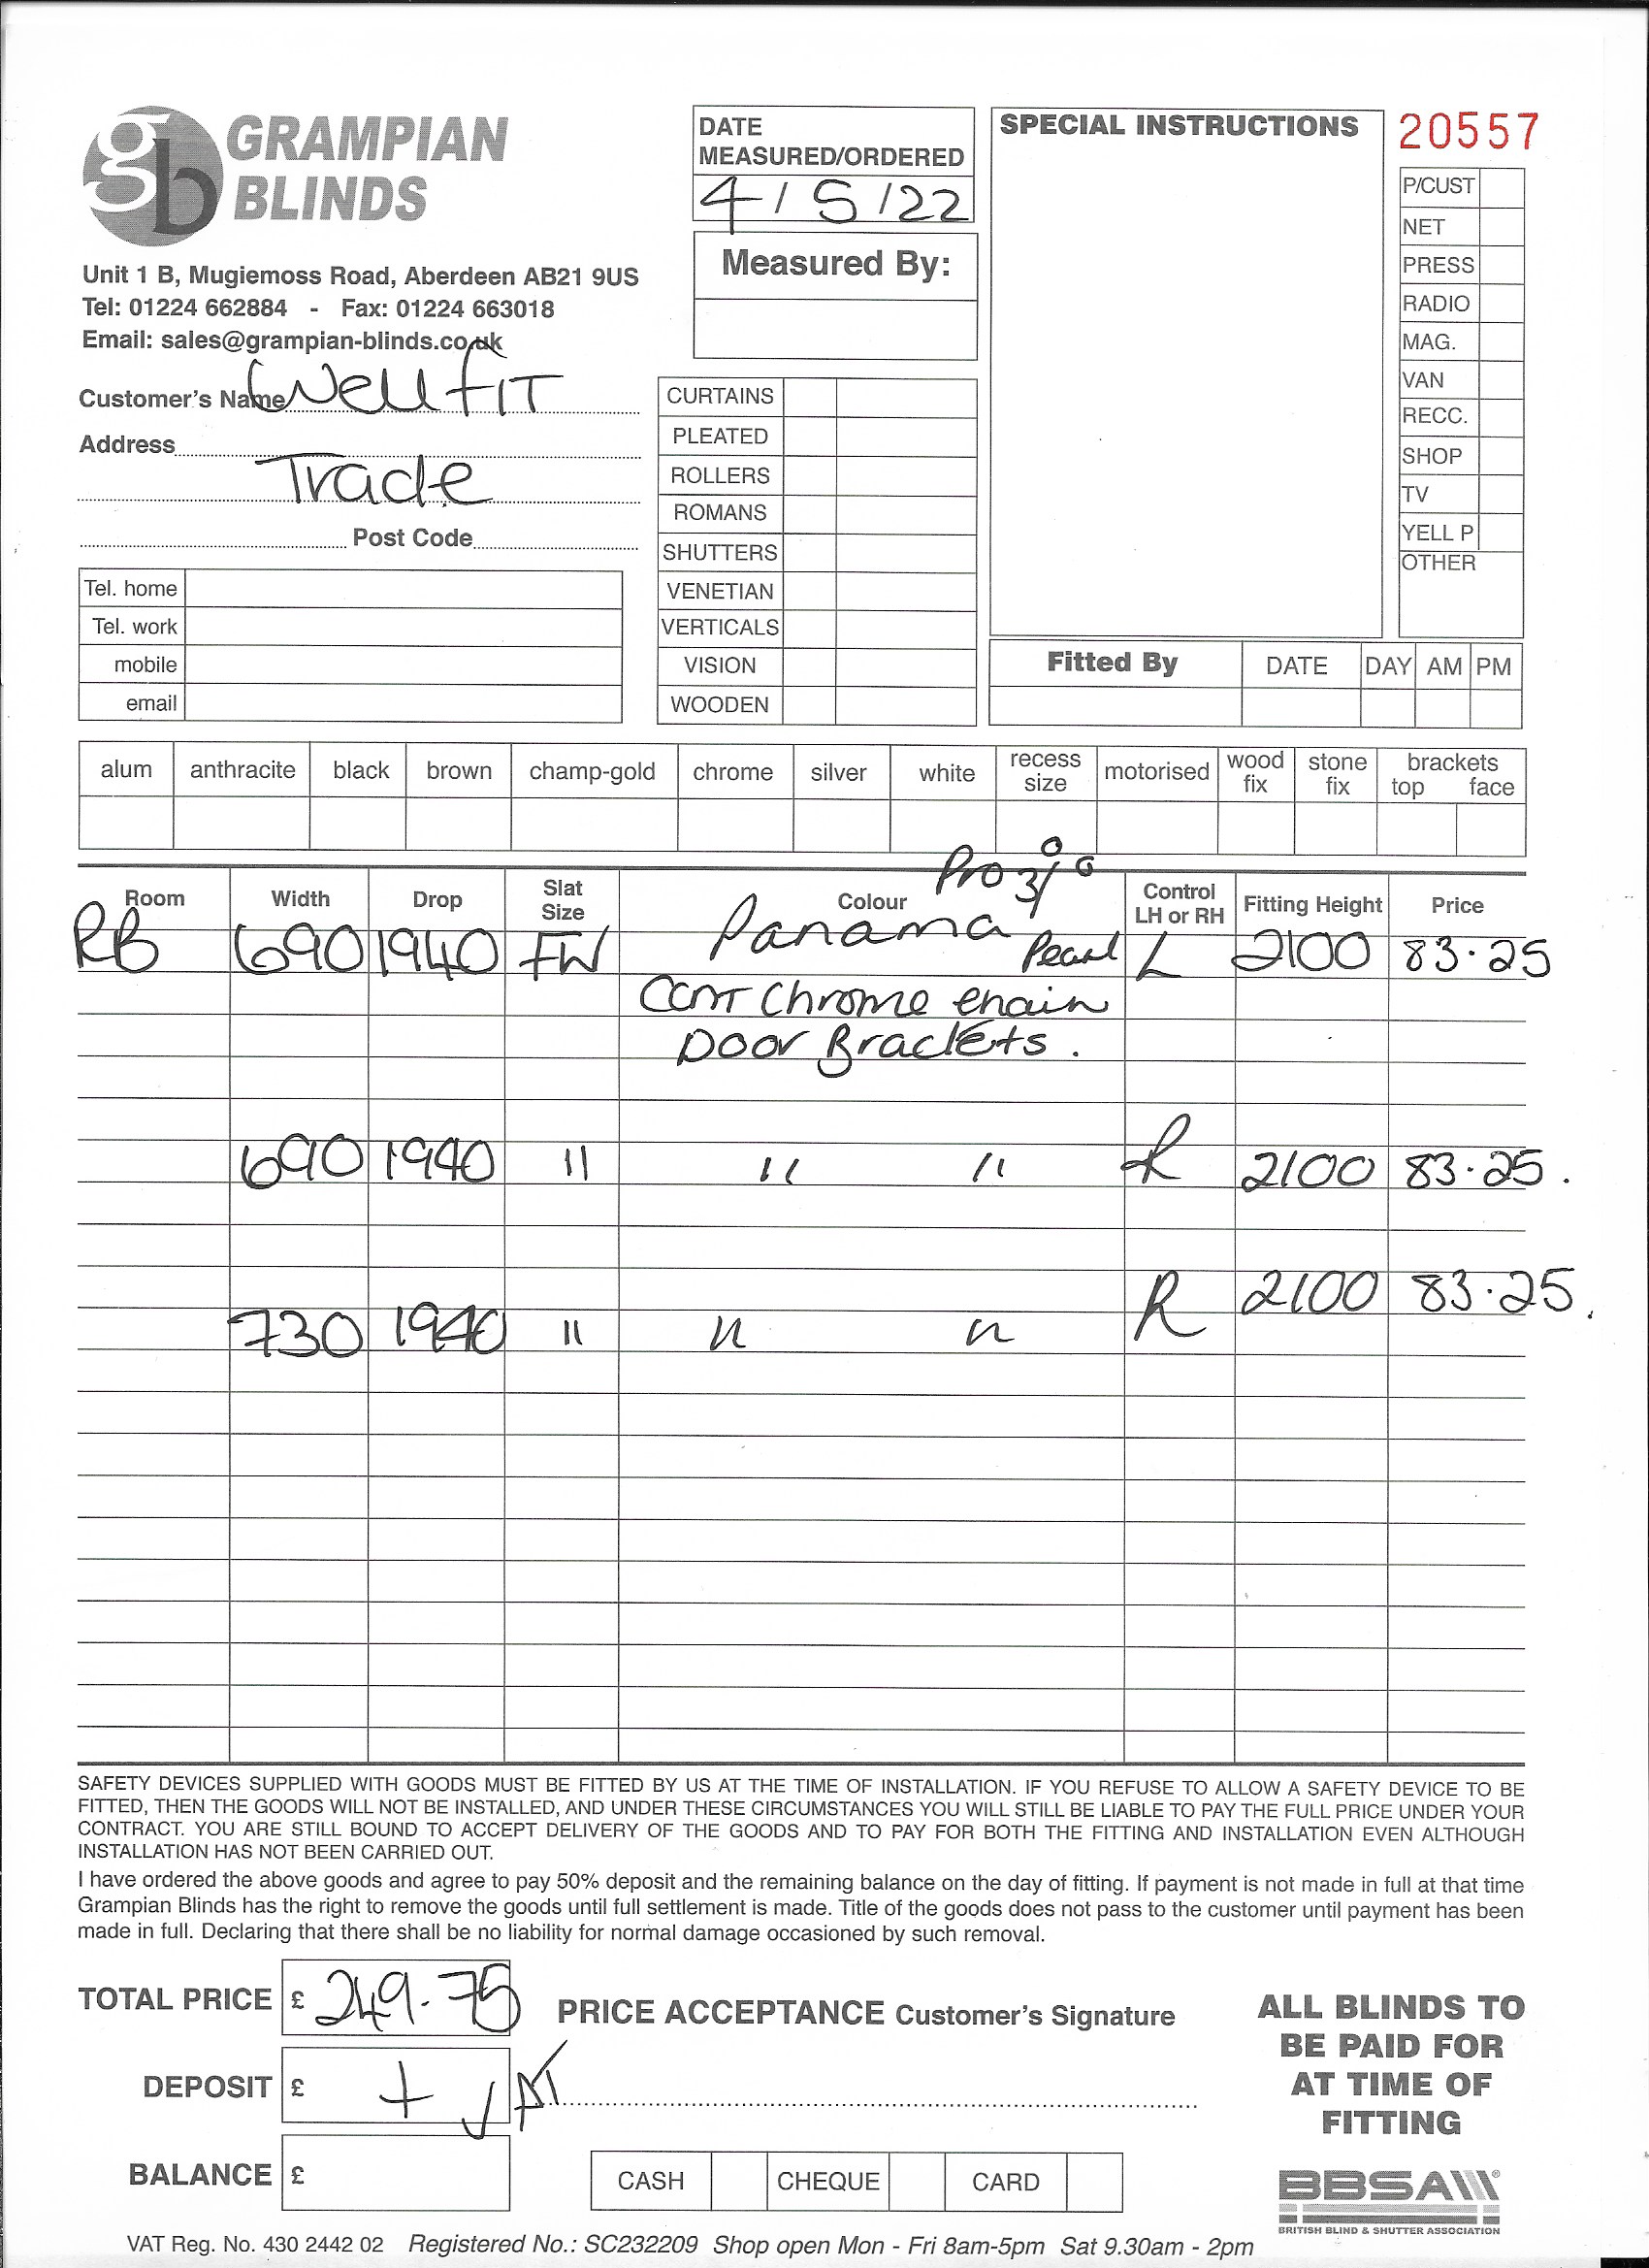 gb GRAMPIAN BLINDS
Unit 1 B, Mugiemoss Road, Aberdeen AB21 9US
Tel: 01224 662884 - Fax: 01224 663018
Email: sales@grampian-blinds.co.uk
Customer's Name Wellfit
Address
Trade
Post Code
Tel. home
Tel. work
mobile
email
DATE
MEASURED/ORDERED
4/5/22
Measured By:
CURTAINS
PLEATED
ROLLERS
ROMANS
SHUTTERS
VENETIAN
VERTICALS
VISION
WOODEN
SPECIAL INSTRUCTIONS
20557
P/CUST
NET
PRESS
RADIO
MAG.
VAN
RECC.
SHOP
TV
YELL P
OTHER
Fitted By DATE DAY AM PM
alum anthracite black brown champ-gold chrome silver white recess size motorised wood fix stone fix brackets top face
Room Width Drop Slat Size Colour Control LH or RH Fitting Height Price
Pro 3%
RB 690 1940 FW Panama Pearl L 2100 83.25
Chrome chain
Door Brackets.
690 1940 " " " R 2100 83.25.
730 1940 " " " R 2100 83.25.
SAFETY DEVICES SUPPLIED WITH GOODS MUST BE FITTED BY US AT THE TIME OF INSTALLATION. IF YOU REFUSE TO ALLOW A SAFETY DEVICE TO BE
FITTED, THEN THE GOODS WILL NOT BE INSTALLED, AND UNDER THESE CIRCUMSTANCES YOU WILL STILL BE LIABLE TO PAY THE FULL PRICE UNDER YOUR
CONTRACT. YOU ARE STILL BOUND TO ACCEPT DELIVERY OF THE GOODS AND TO PAY FOR BOTH THE FITTING AND INSTALLATION EVEN ALTHOUGH
INSTALLATION HAS NOT BEEN CARRIED OUT.
I have ordered the above goods and agree to pay 50% deposit and the remaining balance on the day of fitting. If payment is not made in full at that time
Grampian Blinds has the right to remove the goods until full settlement is made. Title of the goods does not pass to the customer until payment has been
made in full. Declaring that there shall be no liability for normal damage occasioned by such removal.
TOTAL PRICE £ 249.75
PRICE ACCEPTANCE Customer's Signature
DEPOSIT £ + VAT
BALANCE £
CASH CHEQUE CARD
ALL BLINDS TO
BE PAID FOR
AT TIME OF
FITTING
BBSA
BRITISH BLIND & SHUTTER ASSOCIATION
VAT Reg. No. 430 2442 02 Registered No.: SC232209 Shop open Mon - Fri 8am-5pm Sat 9.30am - 2pm